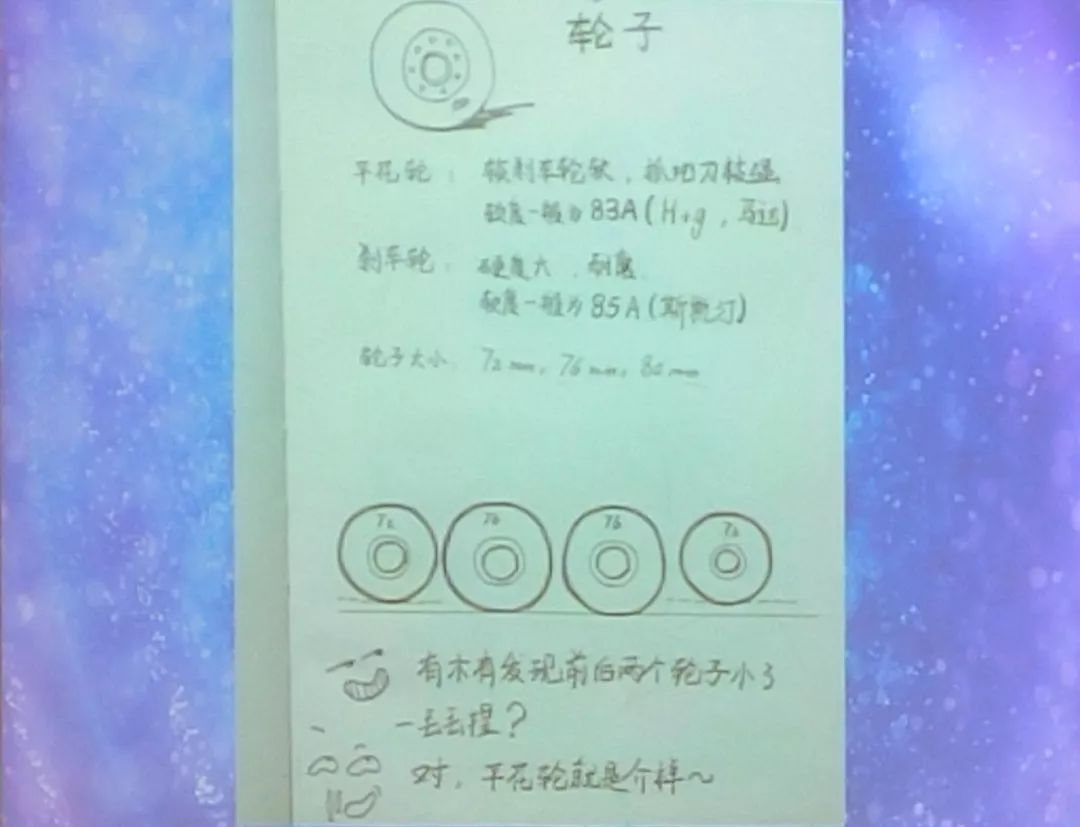 轮子
平花轮： 较刹车轮软，抓地力较强
硬度一般为83A（H+g，马达）
刹车轮： 硬度大，耐磨
硬度一般为85A（斯凯汀）
轮子大小： 72mm，76mm，80mm
72 76 76 72
有木有发现前后两个轮子小了
一丢丢捏？
对，平花轮就是介样～